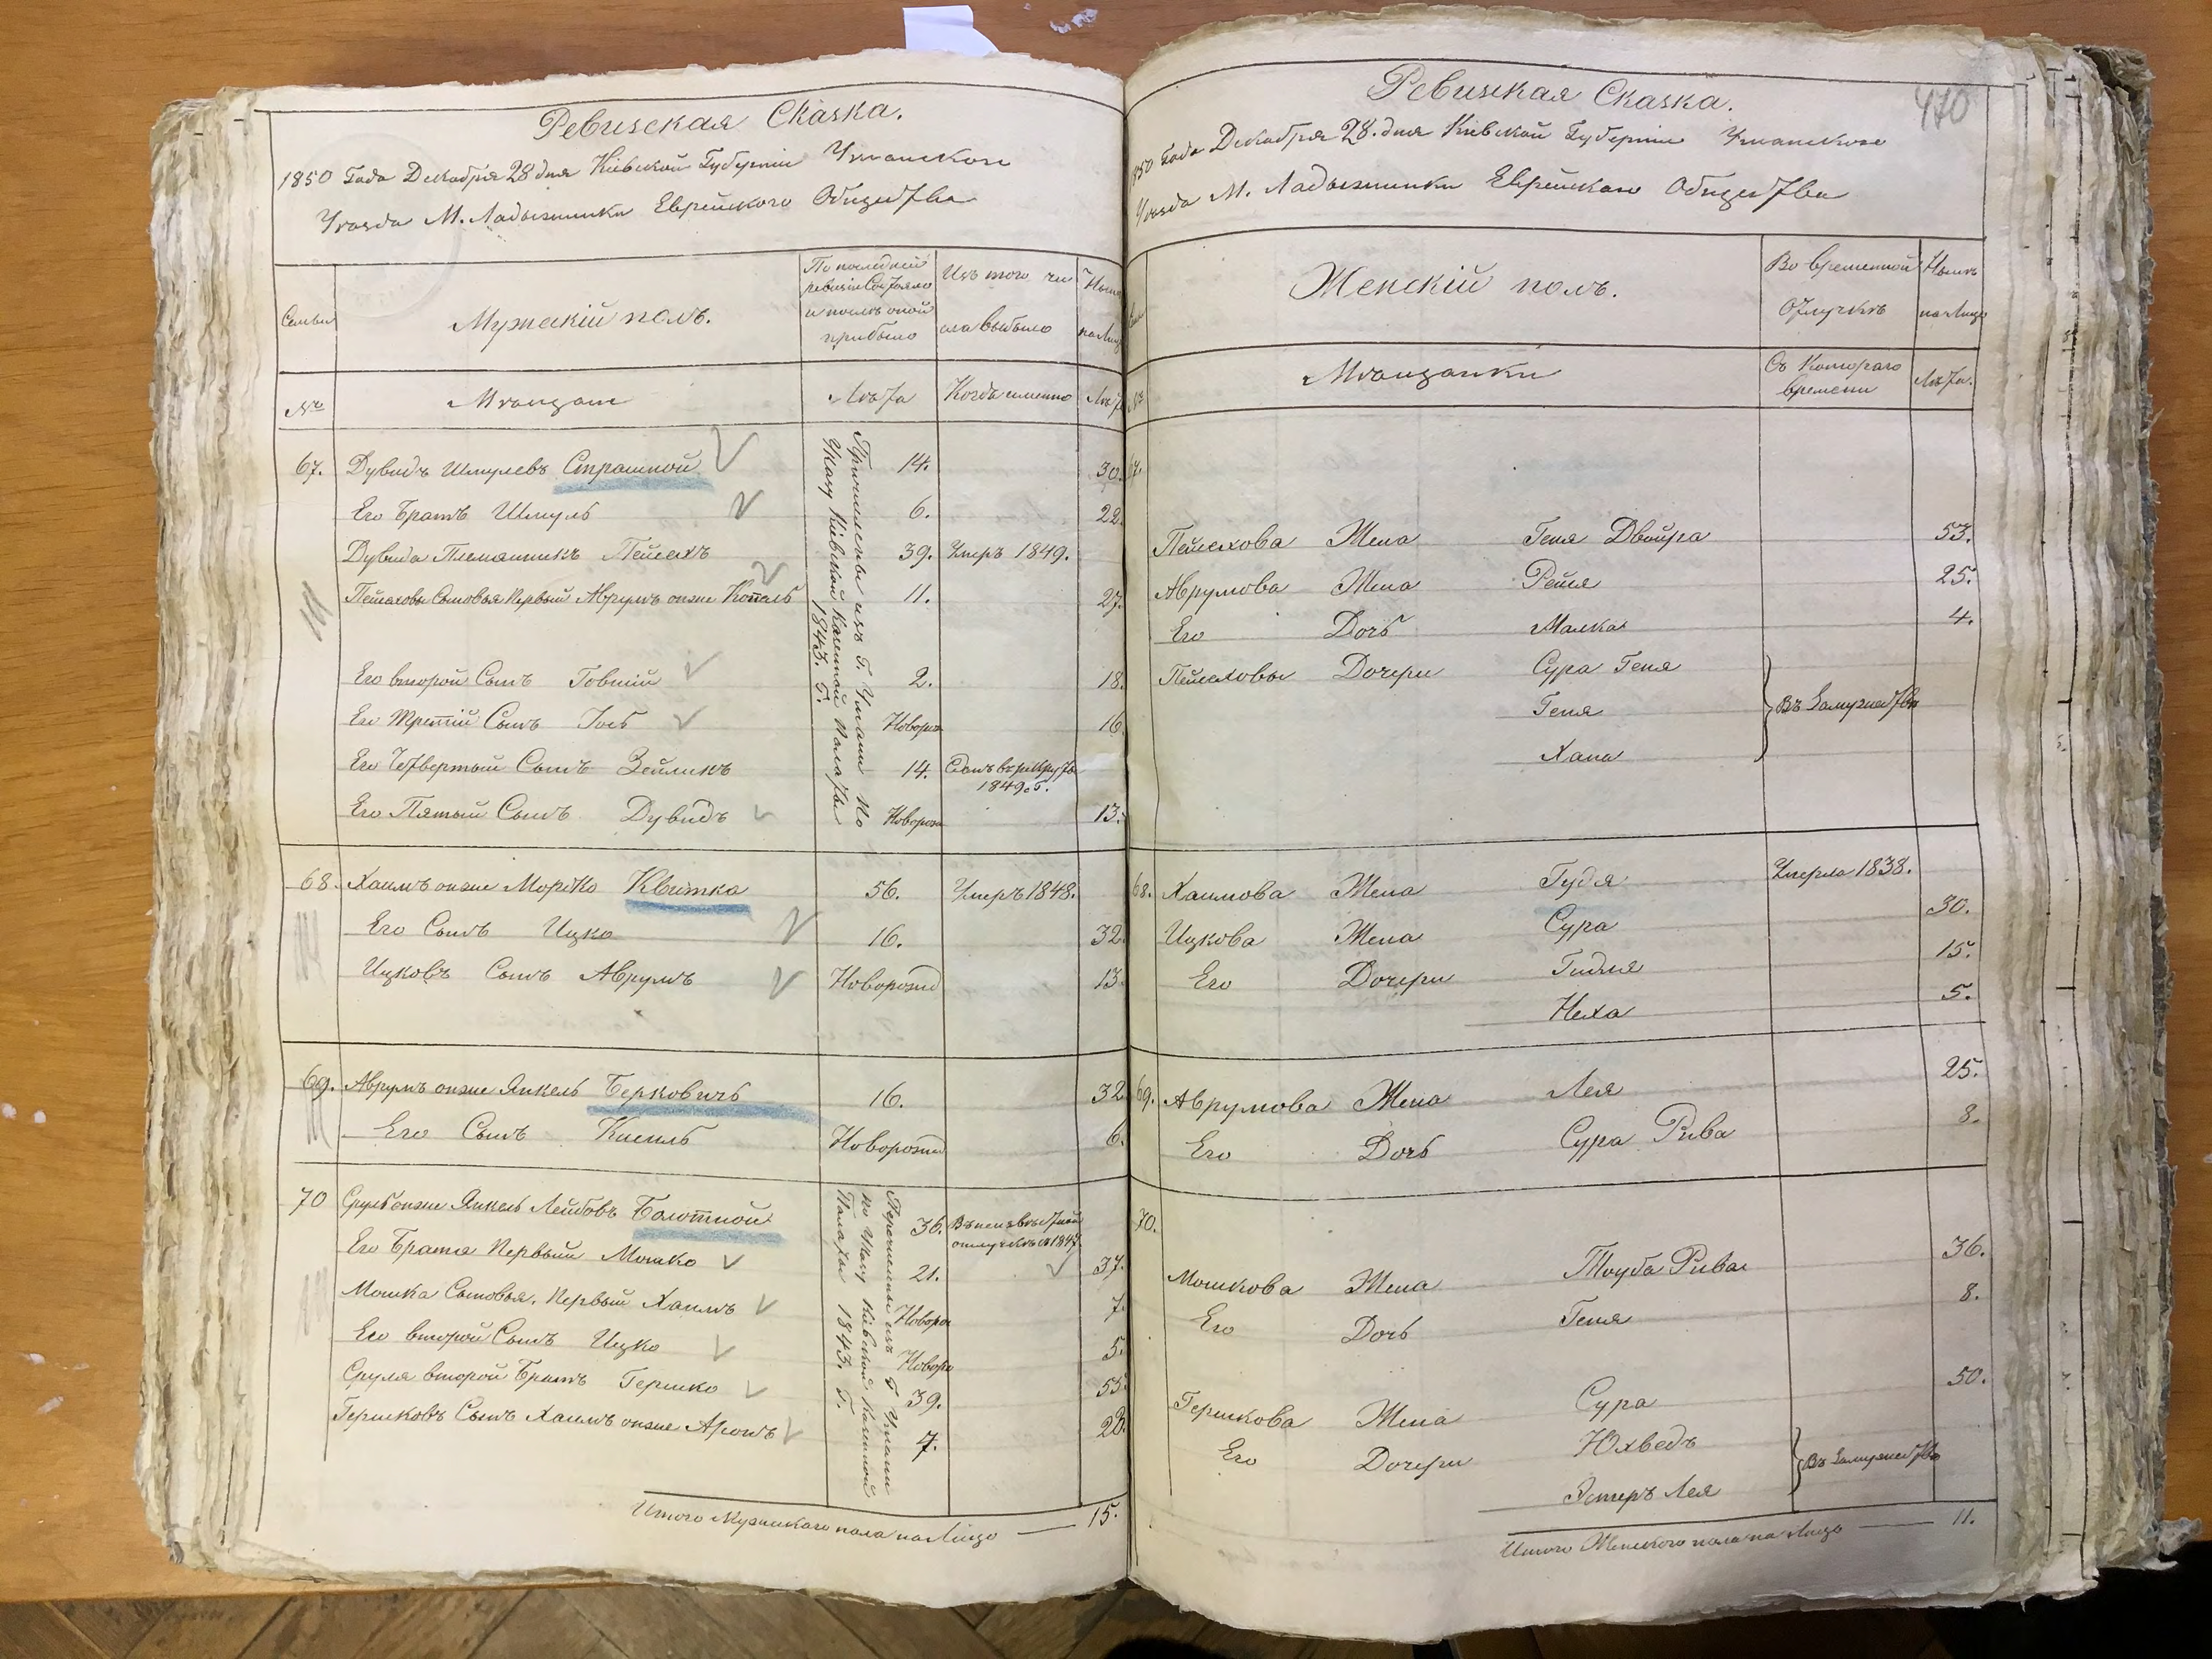 Ревизская Сказка.
1850 Года Декабря 28 дня Кіевской Губерніи Уманскаго
Уѣзда М. Ладыжинки Еврейского Общества
Семьи
Мужескій полъ.
По последней ревизіи Состояло и послѣ оной прибыло
Изъ того числа выбыло
Ныне на Лицо
№
Мѣщане
Лѣта
Когда именно
Лѣта
67. Дувидъ Шмулевъ Страшной 14. 30.
Его Братъ Шмуль 6. 22.
Дувида Племянникъ Пейсахъ 39. Умръ 1849.
Пейсаховы Сыновья Первый Аврумъ онже Копель 11. 27.
Его второй Сынъ Говшій 2. 18.
Его Третій Сынъ Іось Новорож 16.
Его Четвертый Сынъ Зейликъ 14. Сданъ въ рекруты 1849 г.
Его Пятый Сынъ Дувидъ Новорож 13.
Причислены изъ Г. Умани По
Указу Кіевской Казенной Палаты
1843. Г.
68. Хаимъ онже Морко Квитка 56. Умръ 1848.
Его Сынъ Ицко 16. 32.
Ицковъ Сынъ Аврумъ Новорожд 13.
69. Аврумъ онже Янкель Берковичъ 16. 32.
Его Сынъ Кисиль Новорожд 6.
70 Сруль онже Янкель Лейбовъ Болотной 36. Въ неизвѣстной отлучкѣ съ 1847.
Его Братья Первый Мошко 21. 37.
Мошка Сыновья. Первый Хаимъ Новорож 7.
Его второй Сынъ Ицко Новорож 5.
Сруля второй Братъ Гершко 39. 55.
Гершковъ Сынъ Хаимъ онже Аронъ 7. 23.
Перечислены изъ Г. Умани
по Указу Кіевской Казенной
Палаты 1843. Г.
Итого Мужескаго пола на Лицо — 15.
470
Ревизская Сказка.
1850 Года Декабря 28. дня Кіевской Губерніи Уманскаго
Уѣзда М. Ладыжинки Еврейскаго Общества
Женскій полъ.
Во временной Отлучкѣ
Нынѣ на Лицо
№
Мѣщанки
Съ Котораго времени
Лѣта.
67.
Пейсахова Жена Геня Двойра 53.
Аврумова Жена Рейзя 25.
Его Дочь Малка 4.
Пейсаховы Дочери Сура Геня
Геня
Хана
Въ Замужествѣ
68. Хаимова Жена Гудя Умерла 1838.
Ицкова Жена Сура 30.
Его Дочери Гитля 15.
Неха 5.
69. Аврумова Жена Лея 25.
Его Дочь Сура Рива 8.
70.
Мошкова Жена Тоуба Рива 36.
Его Дочь Геня 8.
Гершкова Жена Сура 50.
Его Дочери Юхведъ
Эстеръ Лея
Въ Замужествѣ
Итого Женскаго пола на Лицо — 11.